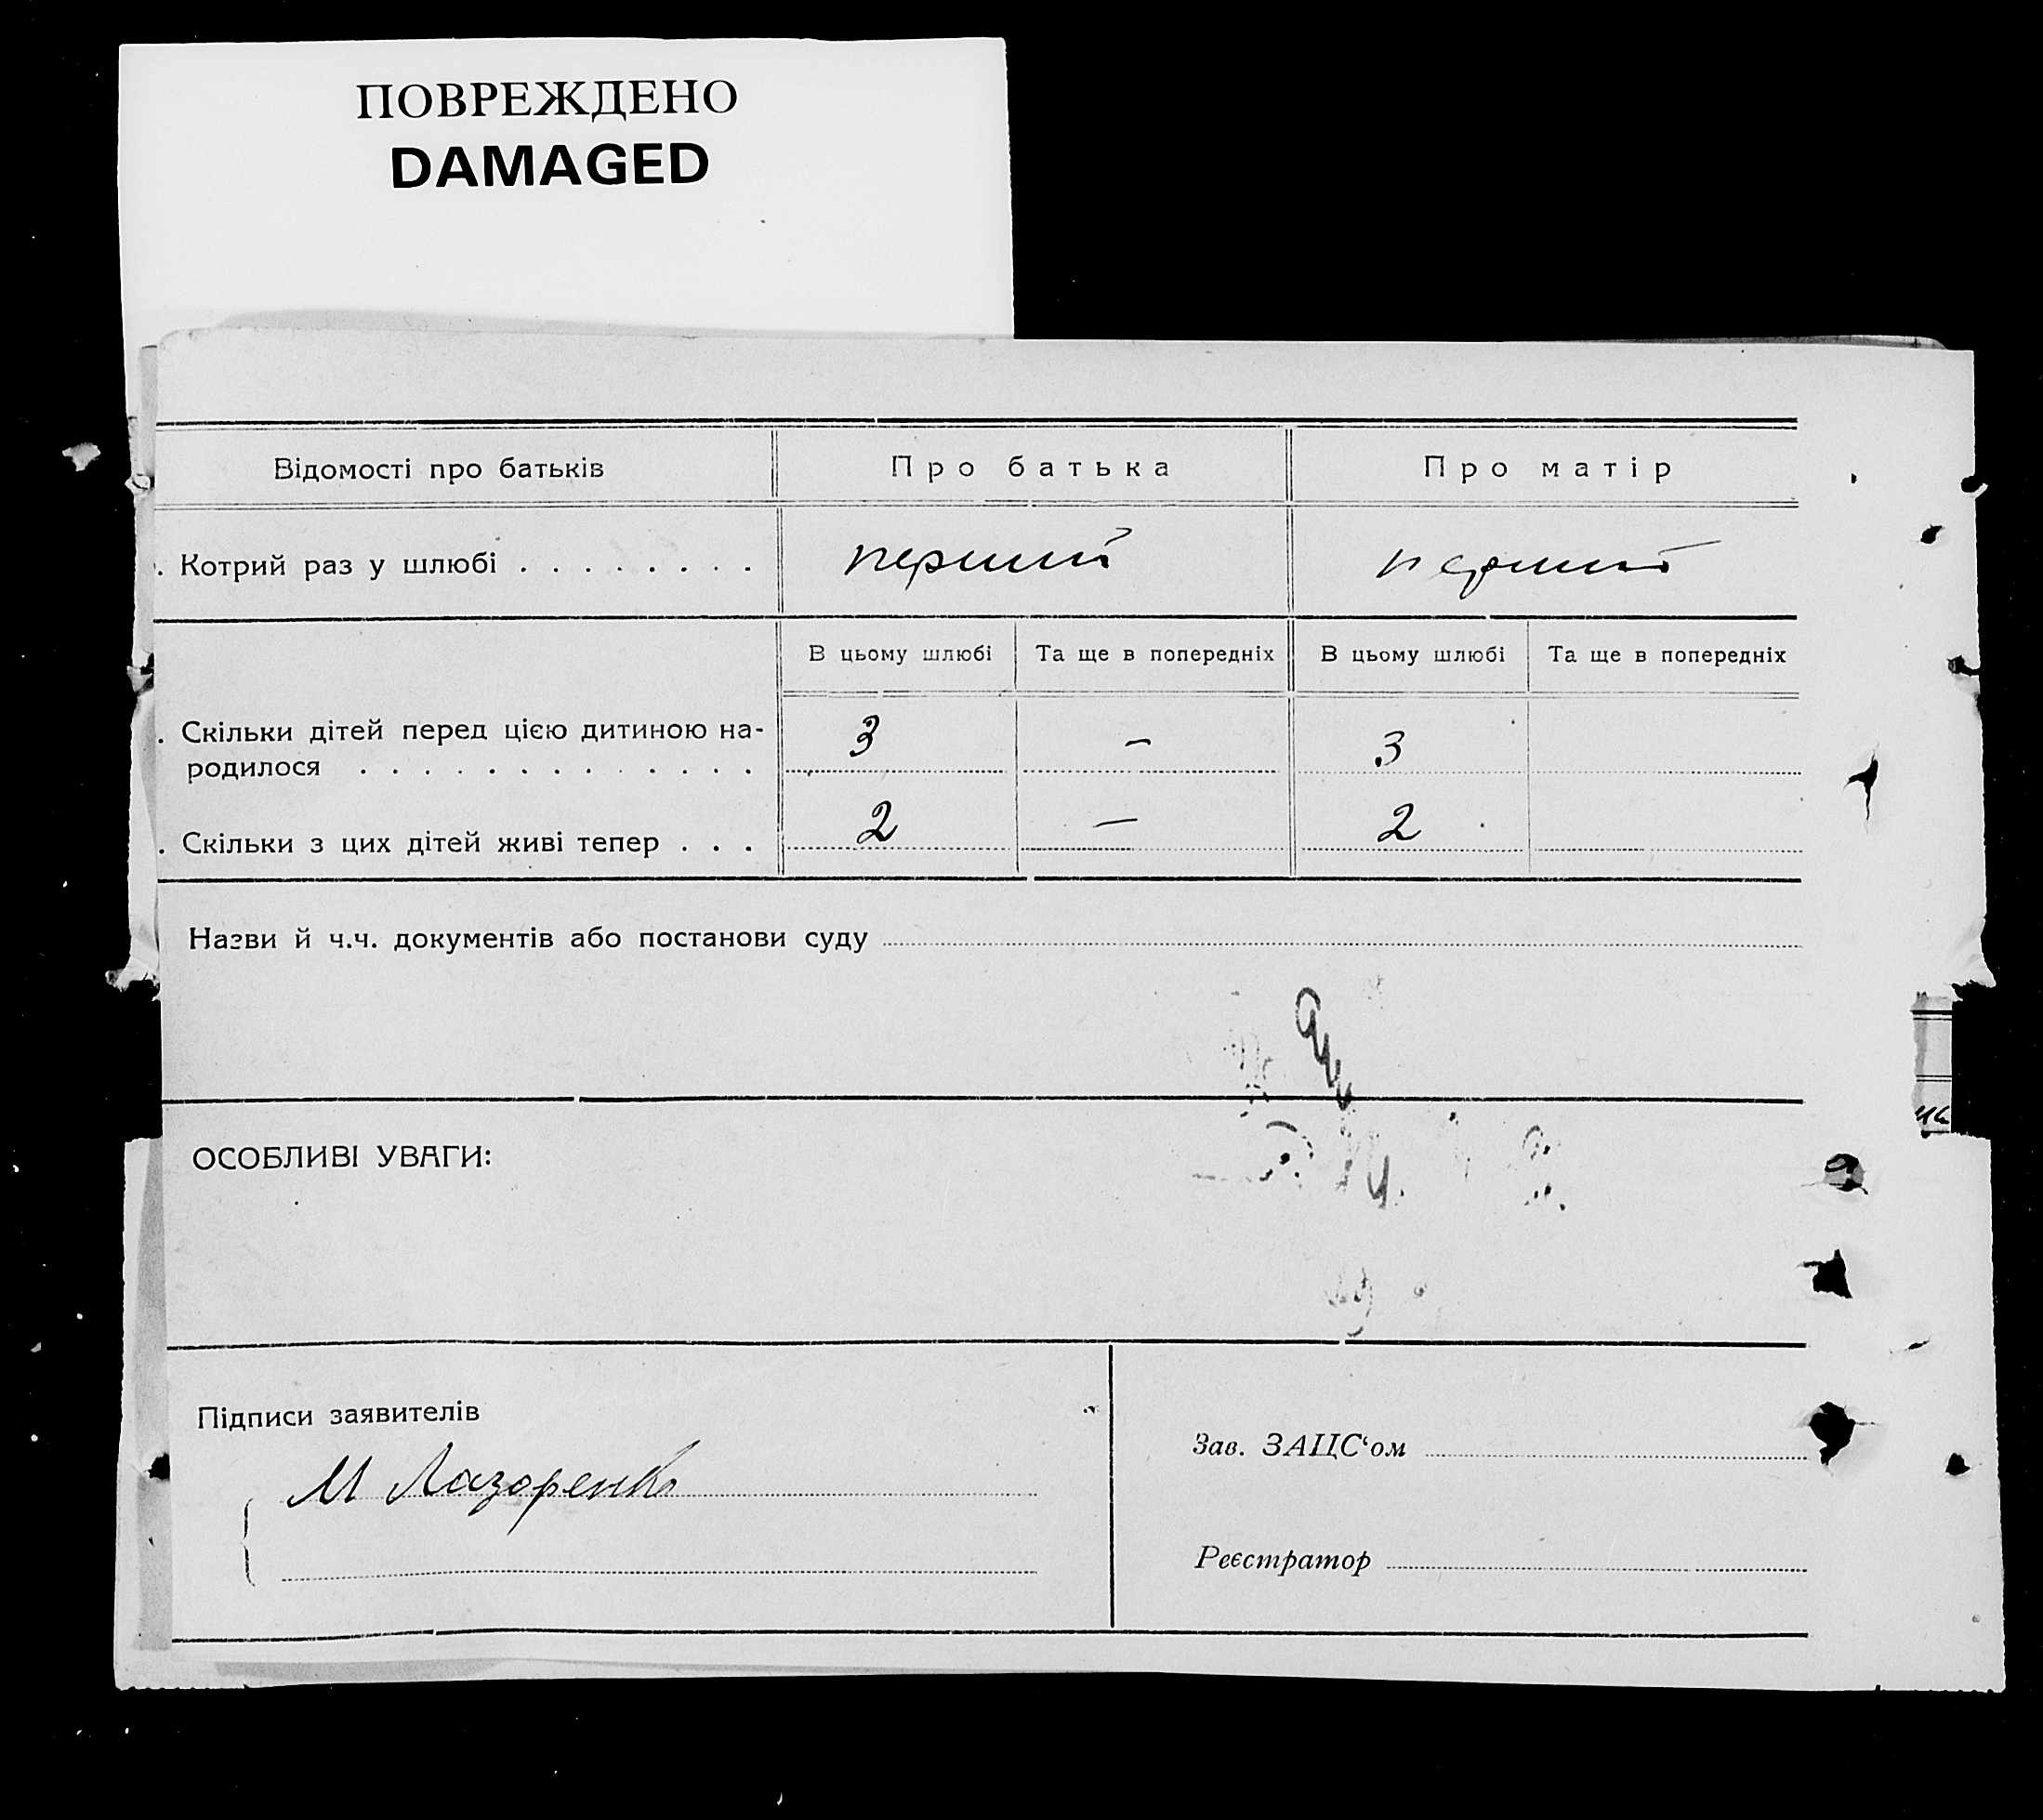 ПОВРЕЖДЕНО
DAMAGED
Відомості про батьків Про батька Про матір
. Котрий раз у шлюбі . . . . . . . . перший перший
В цьому шлюбі Та ще в попередніх В цьому шлюбі Та ще в попередніх
. Скільки дітей перед цією дитиною на-
родилося . . . . . . . . . . . . . 3 – 3
. Скільки з цих дітей живі тепер . . . 2 – 2
Назви й ч.ч. документів або постанови суду
ОСОБЛИВІ УВАГИ:
Підписи заявителів
М Лазоренко
Зав. ЗАЦС‘ом
Реєстратор